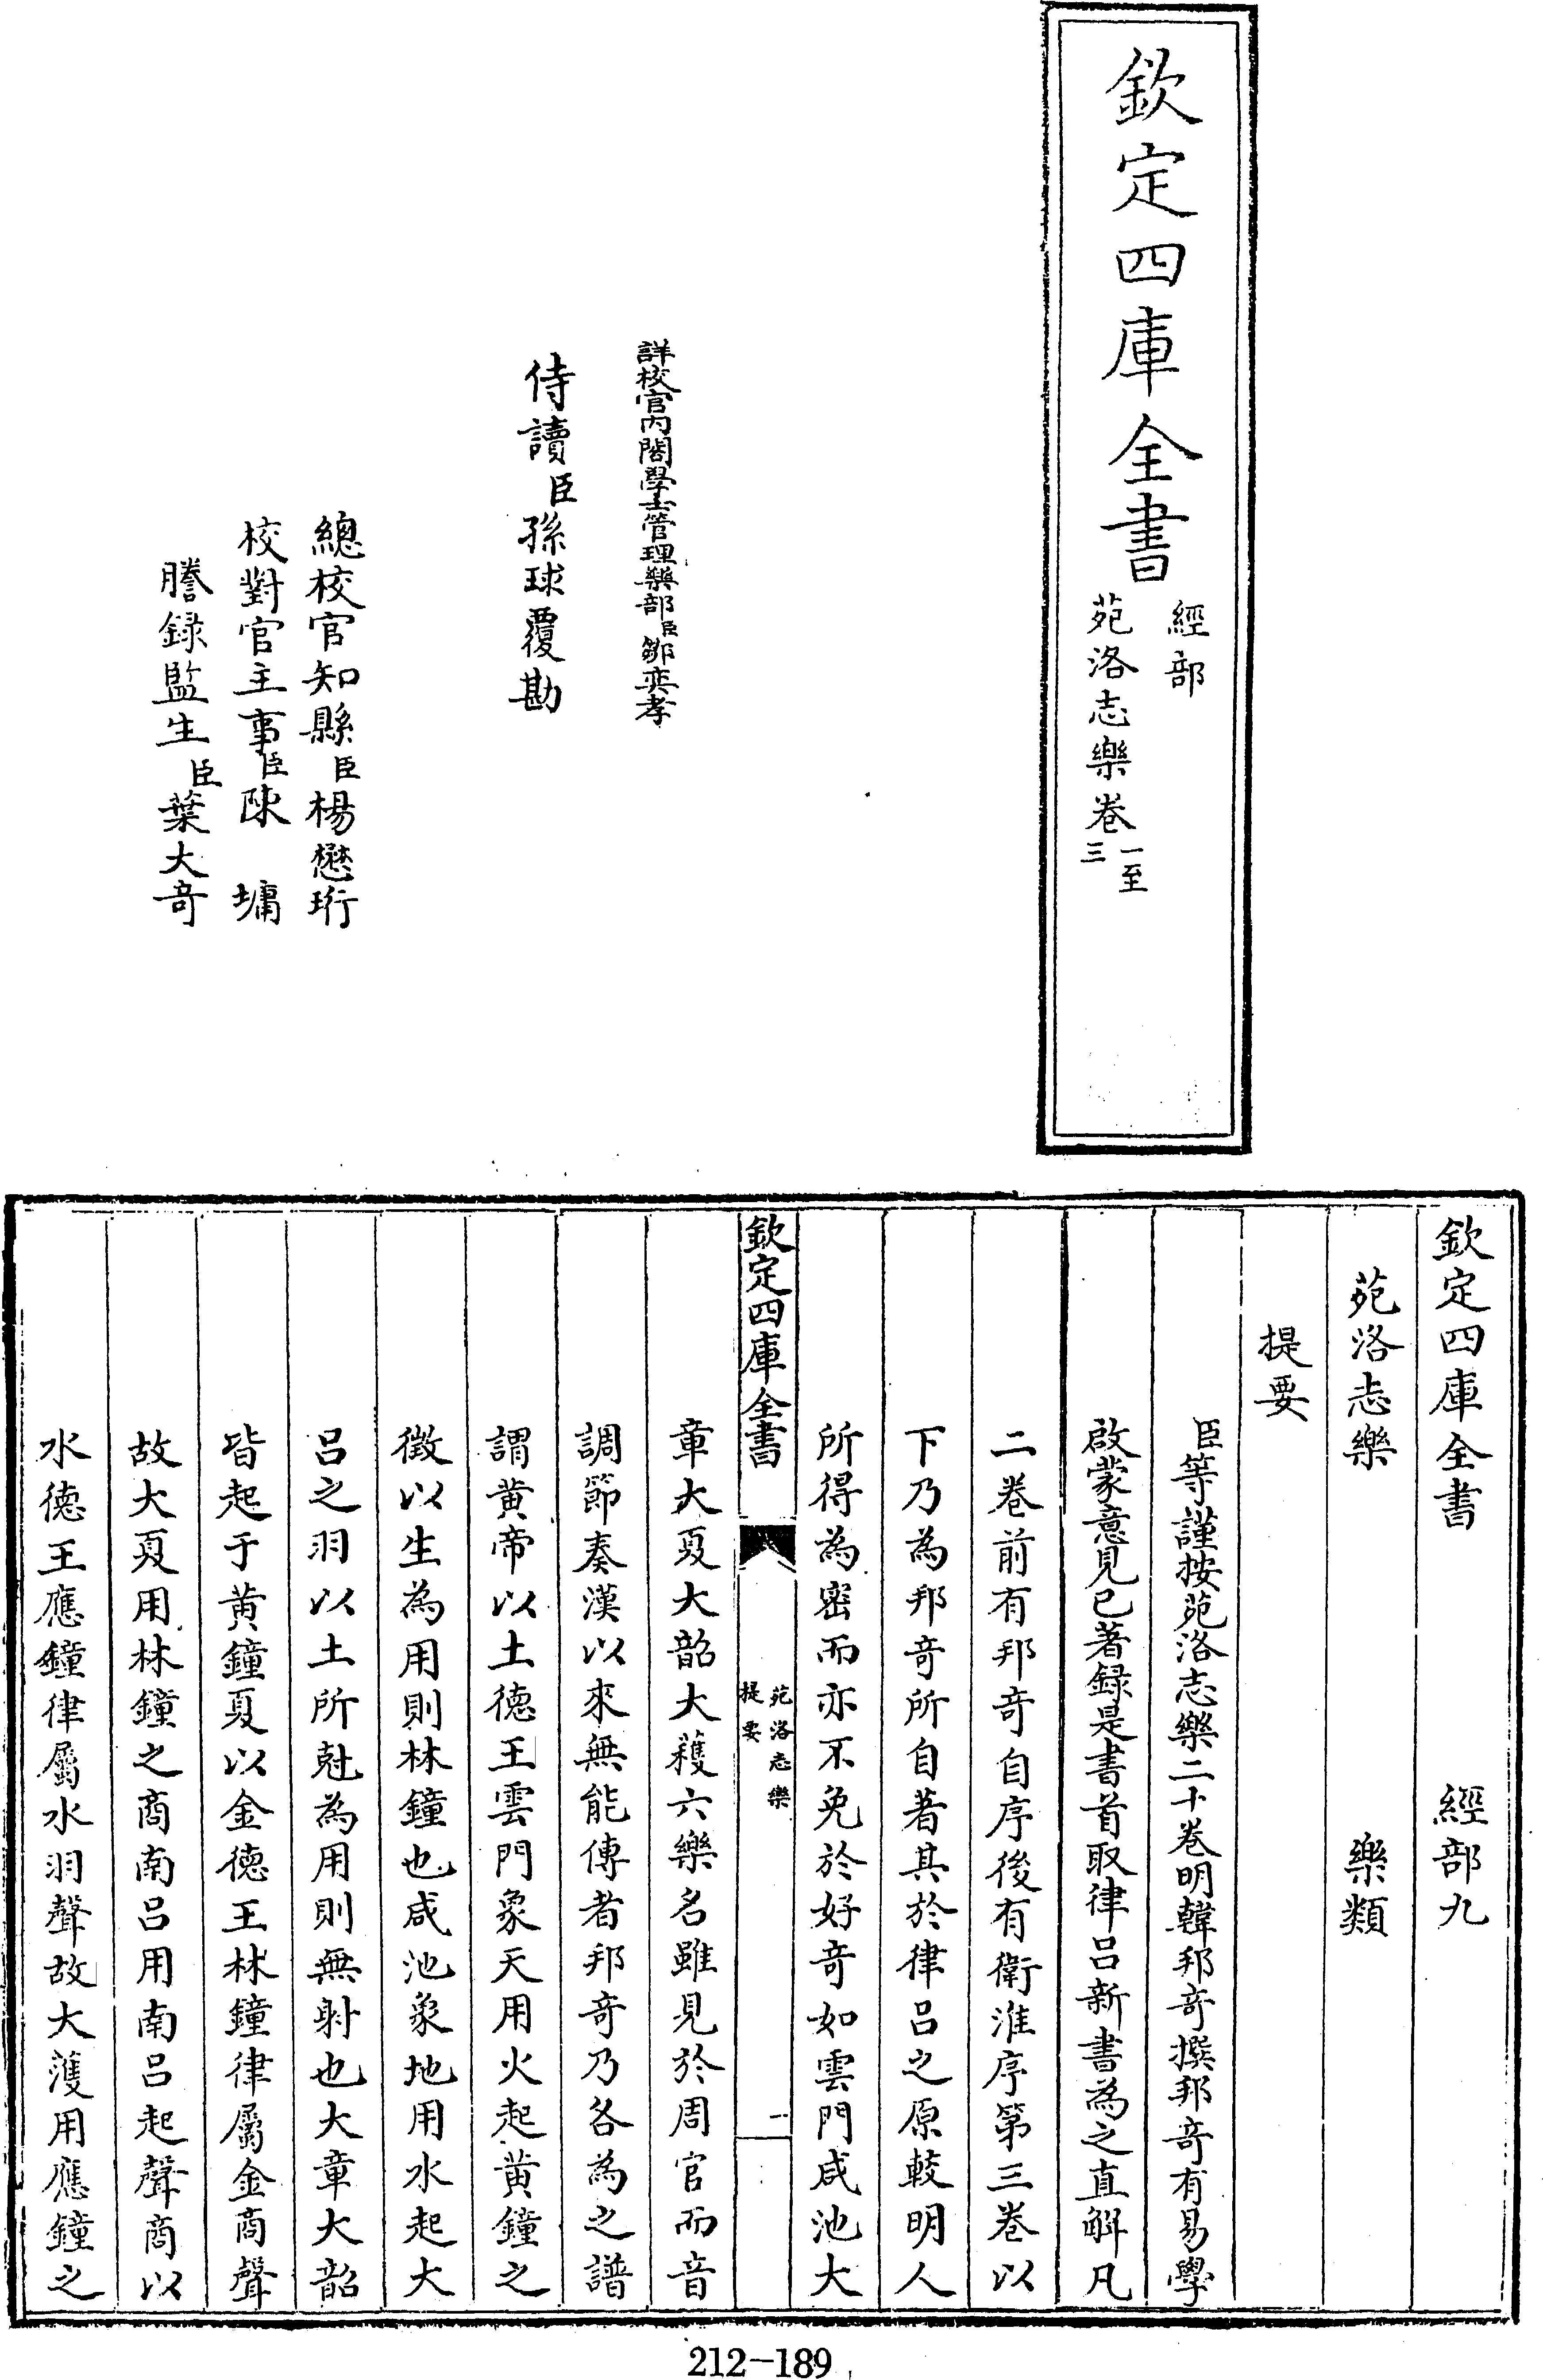 欽定四庫全書
經部
苑洛志樂卷一至三
詳校官內閣學士管理樂部臣鄒奕孝
侍讀臣孫球覆勘
總校官知縣臣楊懋珩
校對官主事臣陳墉
謄録監生臣葉大奇
欽定四庫全書 經部九
苑洛志樂 樂類
提要
臣等謹按苑洛志樂二十卷明韓邦奇撰邦奇有易學
啟蒙意見已著録是書首取律呂新書為之直解凡
二卷前有邦奇自序後有衛淮序第三卷以
下乃為邦奇所自著其於律呂之原較明人
所得為密而亦不免於好奇如雲門咸池大
欽定四庫全書
苑洛志樂
提要
一
章大夏大韶大䕶六樂名雖見於周官而音
調節奏漢以來無能傳者邦奇乃各為之譜
謂黄帝以土德王雲門象天用火起黄鐘之
徵以生為用則林鐘也咸池象地用水起大
呂之羽以土所尅為用則無射也大章大韶
皆起于黄鐘夏以金德王林鐘律屬金商聲
故大夏用林鐘之商南呂用南呂起聲商以
水德王應鐘律屬水羽聲故大濩用應鐘之
212-189